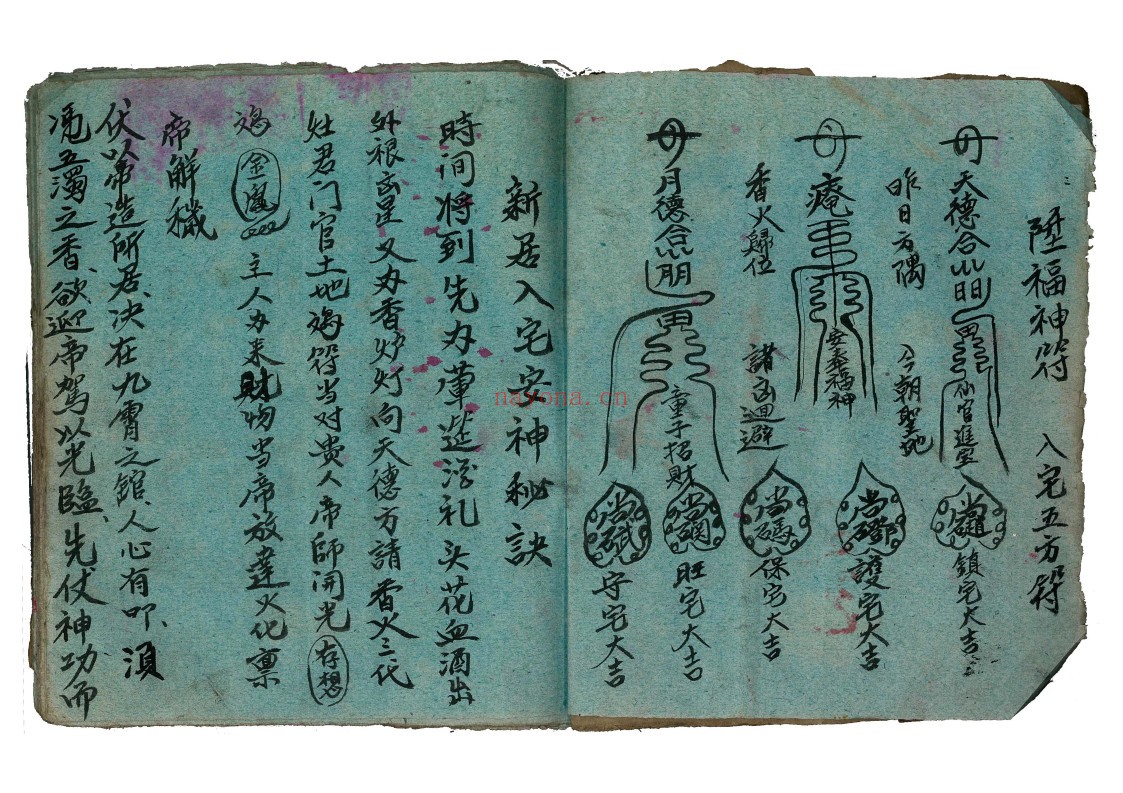 陞福神符 入宅五方符
天德合 仙官進聖 鎮宅大吉
昨日方隅 今朝聖地
護宅大吉
痷 安奉福神
香火歸位 諸凶迴避
保宅大吉
月德合 童子招財
旺宅大吉
守宅大吉
新居入宅安神秘訣
時间将到先力葷筵浮礼头花血酒出
外根凶星又力香炉灯向天德方請香火三代
灶君门官土地鴻符当对贵人帝師開光 存想
鴻 金鳳 主人力来財物当帝放達火化禀
帝解穢
伏以帝造所居决在九霄之舘、人心有叩、須
凴五濁之香、欲迎帝駕以光臨、先仗神功而
nayona.cn